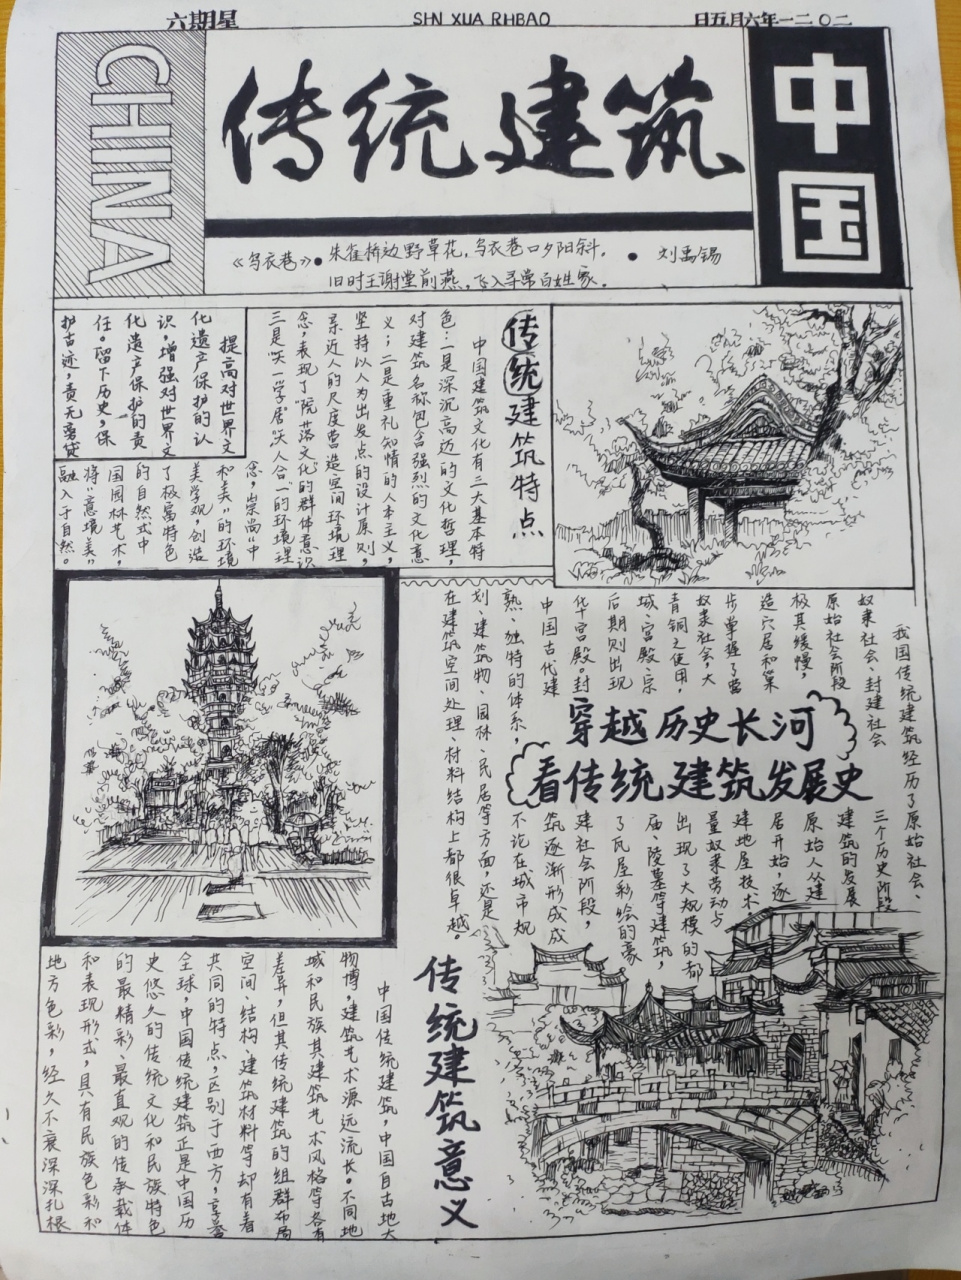 六期星
SHN XUA RHBAO
日五月六年一二〇二
CHINA
传统建筑
中国
《乌衣巷》● 朱雀桥边野草花,乌衣巷口夕阳斜。 ● 刘禹锡
旧时王谢堂前燕,飞入寻常百姓家。
传统建筑特点
中国建筑文化有三大基本特
色:一是深沉高迈的文化哲理,
对建筑名称包含强烈的文化意
义;二是重礼知情的人本主义,
坚持以人为出发点的设计原则,
亲近人的尺度营造空间环境理
念,表现了“院落文化”的群体意识
三是“天一学居”“天人合一”的环境理
念,崇尚“中
和美”的环境
美学观,创造
了极富特色
的自然式中
国园林艺术,
将“意境美”
融入于自然。
提高对世界文
化遗产保护的认
识,增强对世界文
化遗产保护的责
任。留下历史,保
护古迹,责无旁贷
穿越历史长河
看传统建筑发展史
我国传统建筑经历了原始社会、
奴隶社会、封建社会三个历史阶段
原始社会阶段建筑的发展
极其缓慢,原始人从建
造穴居和巢居开始,逐
步掌握了营建地屋技术
奴隶社会,大量奴隶劳动与
青铜之使用,出现了大规模的都
城、宫殿、宗庙、陵墓等建筑,
后期则出现了瓦屋彩绘的豪
华宫殿。封建社会阶段,
中国古代建筑逐渐形成成
熟、独特的体系,不论在城市规
划、建筑物、园林、民居等方面,还是
在建筑空间处理、材料结构上都很卓越。
传统建筑意义
中国传统建筑,中国自古地大
物博,建筑艺术源远流长。不同地
域和民族其建筑艺术风格等各有
差异,但其传统建筑的组群布局
空间、结构、建筑材料等却有着
共同的特点,区别于西方,享誉
全球,中国传统建筑正是中国历
史悠久的传统文化和民族特色
的最精彩、最直观的传承载体
和表现形式,具有民族色彩和
地方色彩,经久不衰深深扎根